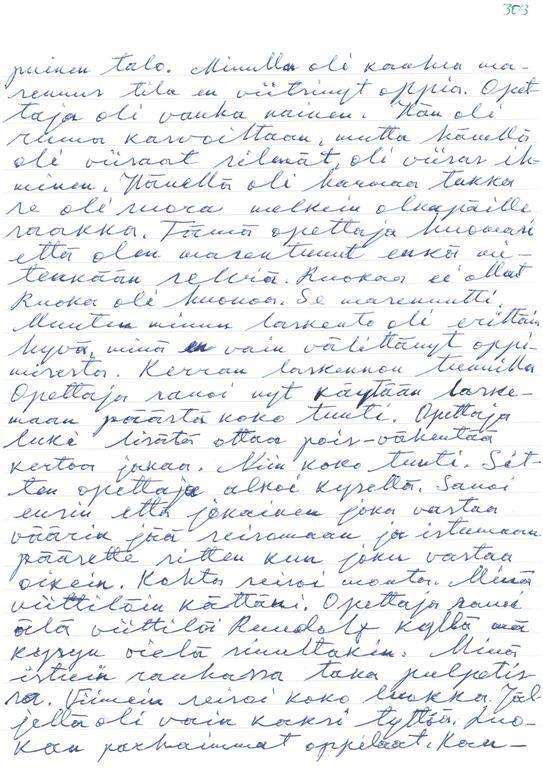 303
puinen talo. Minulla oli kauhea ma-
sennus tila en viitsinyt oppia. Opet-
taja oli vanha nainen. Hän oli
ruma kasvoiltaan, mutta hänellä
oli viisaat silmät, oli viisas ih-
minen. Hänellä oli harmaa tukka
se oli suora melkein olkapäille
saakka. Tämä opettaja huomasi
että olen masentunut enkä mi-
tenkään selviä. Ruokaa ei ollut
Ruoka oli huonoa. Se masennutti.
Muuten minun laskento oli erittäin
hyvä, minä en vain välittänyt oppi-
misesta. Kerran laskennon tunnilla
Opettaja sanoi nyt käytään laske-
maan päästä koko tunti. Opettaja
luke lisätä ottaa pois-vähentää
kertoa jakaa. Niin koko tunti. Sit-
ten opettaja alkoi kysellä. Sanoi
ensin että jokainen joka vastaa
väärin jää seisomaan, ja istumaan
pääsette sitten kun joku vastaa
oikein. Kohta seisoi monta. Minä
viittilöin kättäni. Opettaja sanoi
älä viittilöi Rudolf kyllä mä
kysyn vielä sinultakin. Minä
istuin rauhassa taka pulpetis
sa. Viimein seisoi koko luokka. Jäl-
jellä oli vain kaksi tyttöä. Luo-
kan parhaimmat oppilaat. Kan-